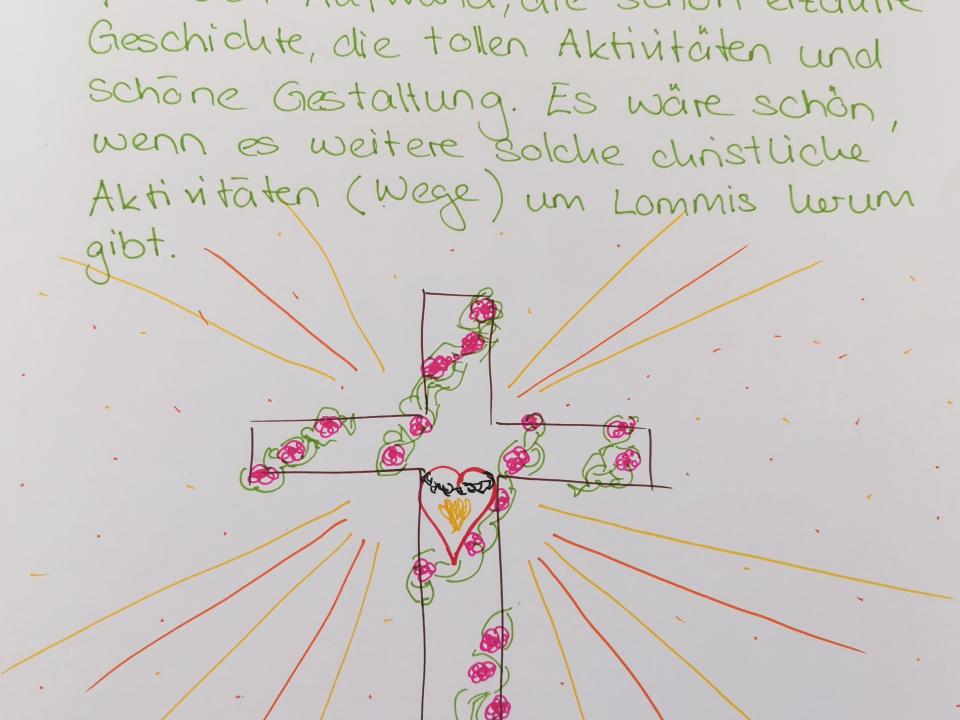 Aufwand, die schön erzählte
Geschichte, die tollen Aktivitäten und
schöne Gestaltung. Es wäre schön,
wenn es weitere solche christliche
Aktivitäten (Wege) um Lommis herum
gibt.